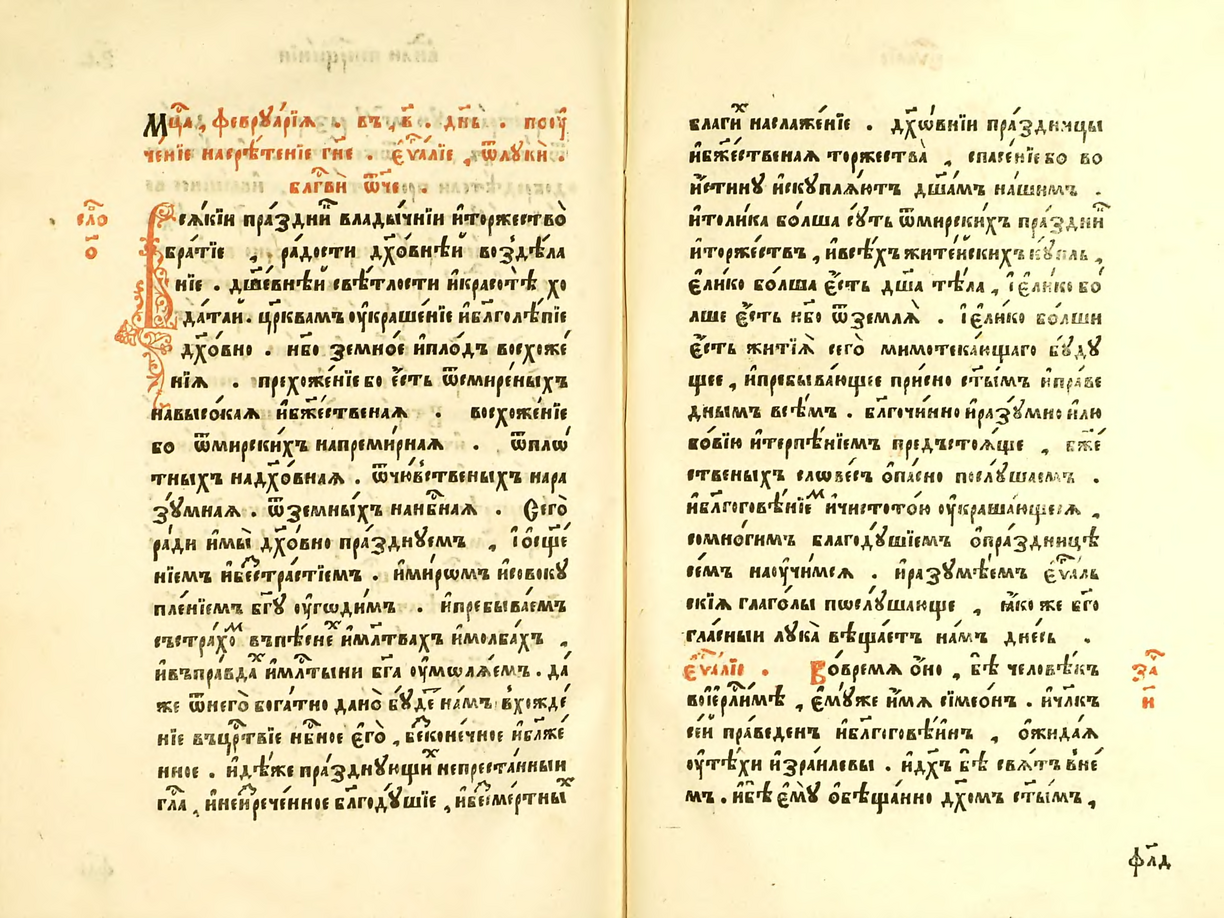 Мцⷭ҇а, феврꙋа́рїѧ . въ, в҃ . дн҃ь . поꙋ
че́нїе насрѣ́тенїе гн҃е . є҆ѵⷢ҇а́лїе, ѿлꙋкѝ .
блгⷭ҇вѝ ѿч҃е .
сло́
о҃
Всѧ́кїи пра́здниⷦ҇ влады́чнїи и҆торжество̀
бра́тїе , ра́дости дх҃о́внѣй возⸯдѣ́ла
нїе . дш҃е́внѣй свѣ́тлости и҆красотѣ̀ хо
да́тай. цр҃квамъ ᲂу҆краше́нїе и҆бл҃голѣ́пїе
дх҃о́вно . нбⷪ҇ земно́е и҆пло́дъ восхоже́
нїѧ . прехоже́нїе бо є҆́сть ѿсмире́ныхъ
навысо́каѧ и҆бж҃е́ственаѧ . восхоже́нїе
бо ѿмирски́хъ напреми́рнаѧ . ѿпло́
тныхъ надх҃о́внаѧ . ѿчю́вственыхъ нара
зꙋ́мнаѧ . ѿземны́хъ нанбⷭ҇наѧ . Сего̀
ра́ди и҆мы̀ дх҃о́вно пра́зднꙋемъ , і҆ѡ҆сщ҃е́
нїемъ и҆бестра́стїемъ . и҆ми́ромъ и҆совокꙋ
пле́нїемъ бг҃ꙋ ᲂу҆гѡди́мъ . и҆пребыва́емъ
състра́хоⷨ въпѣ́снеⷯ и҆мл҃твахъ и҆молба́хъ ,
и҆въпра́вдаⷯ и҆млⷭ҇тыни бг҃а ᲂу҆мѡлѧ́емъ . да́
же ѿнего̀ бога́тно дано̀ бꙋ́де на́мъ вхожде́
нїе въцрⷭ҇твїе нбⷭ҇ное є҆го̀ , бесконе́чное и҆бл҃же́
нное . и҆дѣ́же пра́зднꙋющиⷯ непреста́нный
гла́съ , и҆неизрече́нное благодꙋ́шїе , и҆бесме́ртныⷯ
благиⷯ наслажде́нїе . дх҃о́внїи пра́здницы
и҆бж҃е́ственаѧ торжества̀ , спасе́нїе бо во
и҆́стинꙋ и҆скꙋплѧ́ютъ дш҃а́мъ на́шимъ .
и҆толи́ка бо́лша сꙋ́ть ѿмирски́хъ пра́здниⷦ҇
и҆торжествъ , и҆всѣ́хъ жите́йскихъ кꙋ́пль ,
є҆ли́ко бо́лша є҆́сть дш҃а тѣ́ла , і҆є҆ли́ко бо
лше є҆́сть нбⷪ҇ ѿземлѧ̀ . і҆є҆ли́ко бо́лши
є҆́сть житїѧ̀ сего̀ мимотекꙋ́щаго бꙋ́дꙋ
щее , и҆пребыва́ющее при́сно ст҃ы́мъ и҆пра́ве
днымъ всѣ́мъ . бл҃гочи́нно и҆разꙋ́мно и҆лю
бо́вїю и҆терпѣ́нїемъ предъстоѧ́ще , бж҃е́
ственыхъ слове́съ ѻ҆па́сно послꙋ́шаемъ .
и҆бл҃гоговѣ́нїеⷨ и҆чистото́ю ᲂу҆краша́ющесѧ ,
сомно́гимъ благодꙋ́шїемъ ѻ҆пра́здницѣ
се́мъ наꙋчи́мсѧ . и҆разꙋмѣ́емъ є҆ѵⷢ҇аль
скїѧ глаго́лы послꙋ́шающе , ꙗ҆́ко же бг҃о
гла́сныи лꙋка̀ вѣща́етъ на́мъ дне́сь .
є҆ѵⷢ҇а́лїе . Вовре́мѧ ѻ҆́но , бѣ̀ человѣ́къ
воі҆ерⷭ҇ли́мѣ , є҆мꙋ́же и҆́мѧ сімео́нъ . и҆чл҃къ
се́й пра́веденъ и҆бл҃гоговѣ́инъ , ѻ҆жида́ѧ
ᲂу҆тѣ́хи и҆зра́илевы . и҆дх҃ъ бѣ̀ свѧ́тъ вне́
мъ . и҆бѣ̀ є҆мꙋ̀ ѻ҆бѣща́нно дх҃омъ ст҃ы́мъ ,
заⷱ҇
и҃
фл҃д